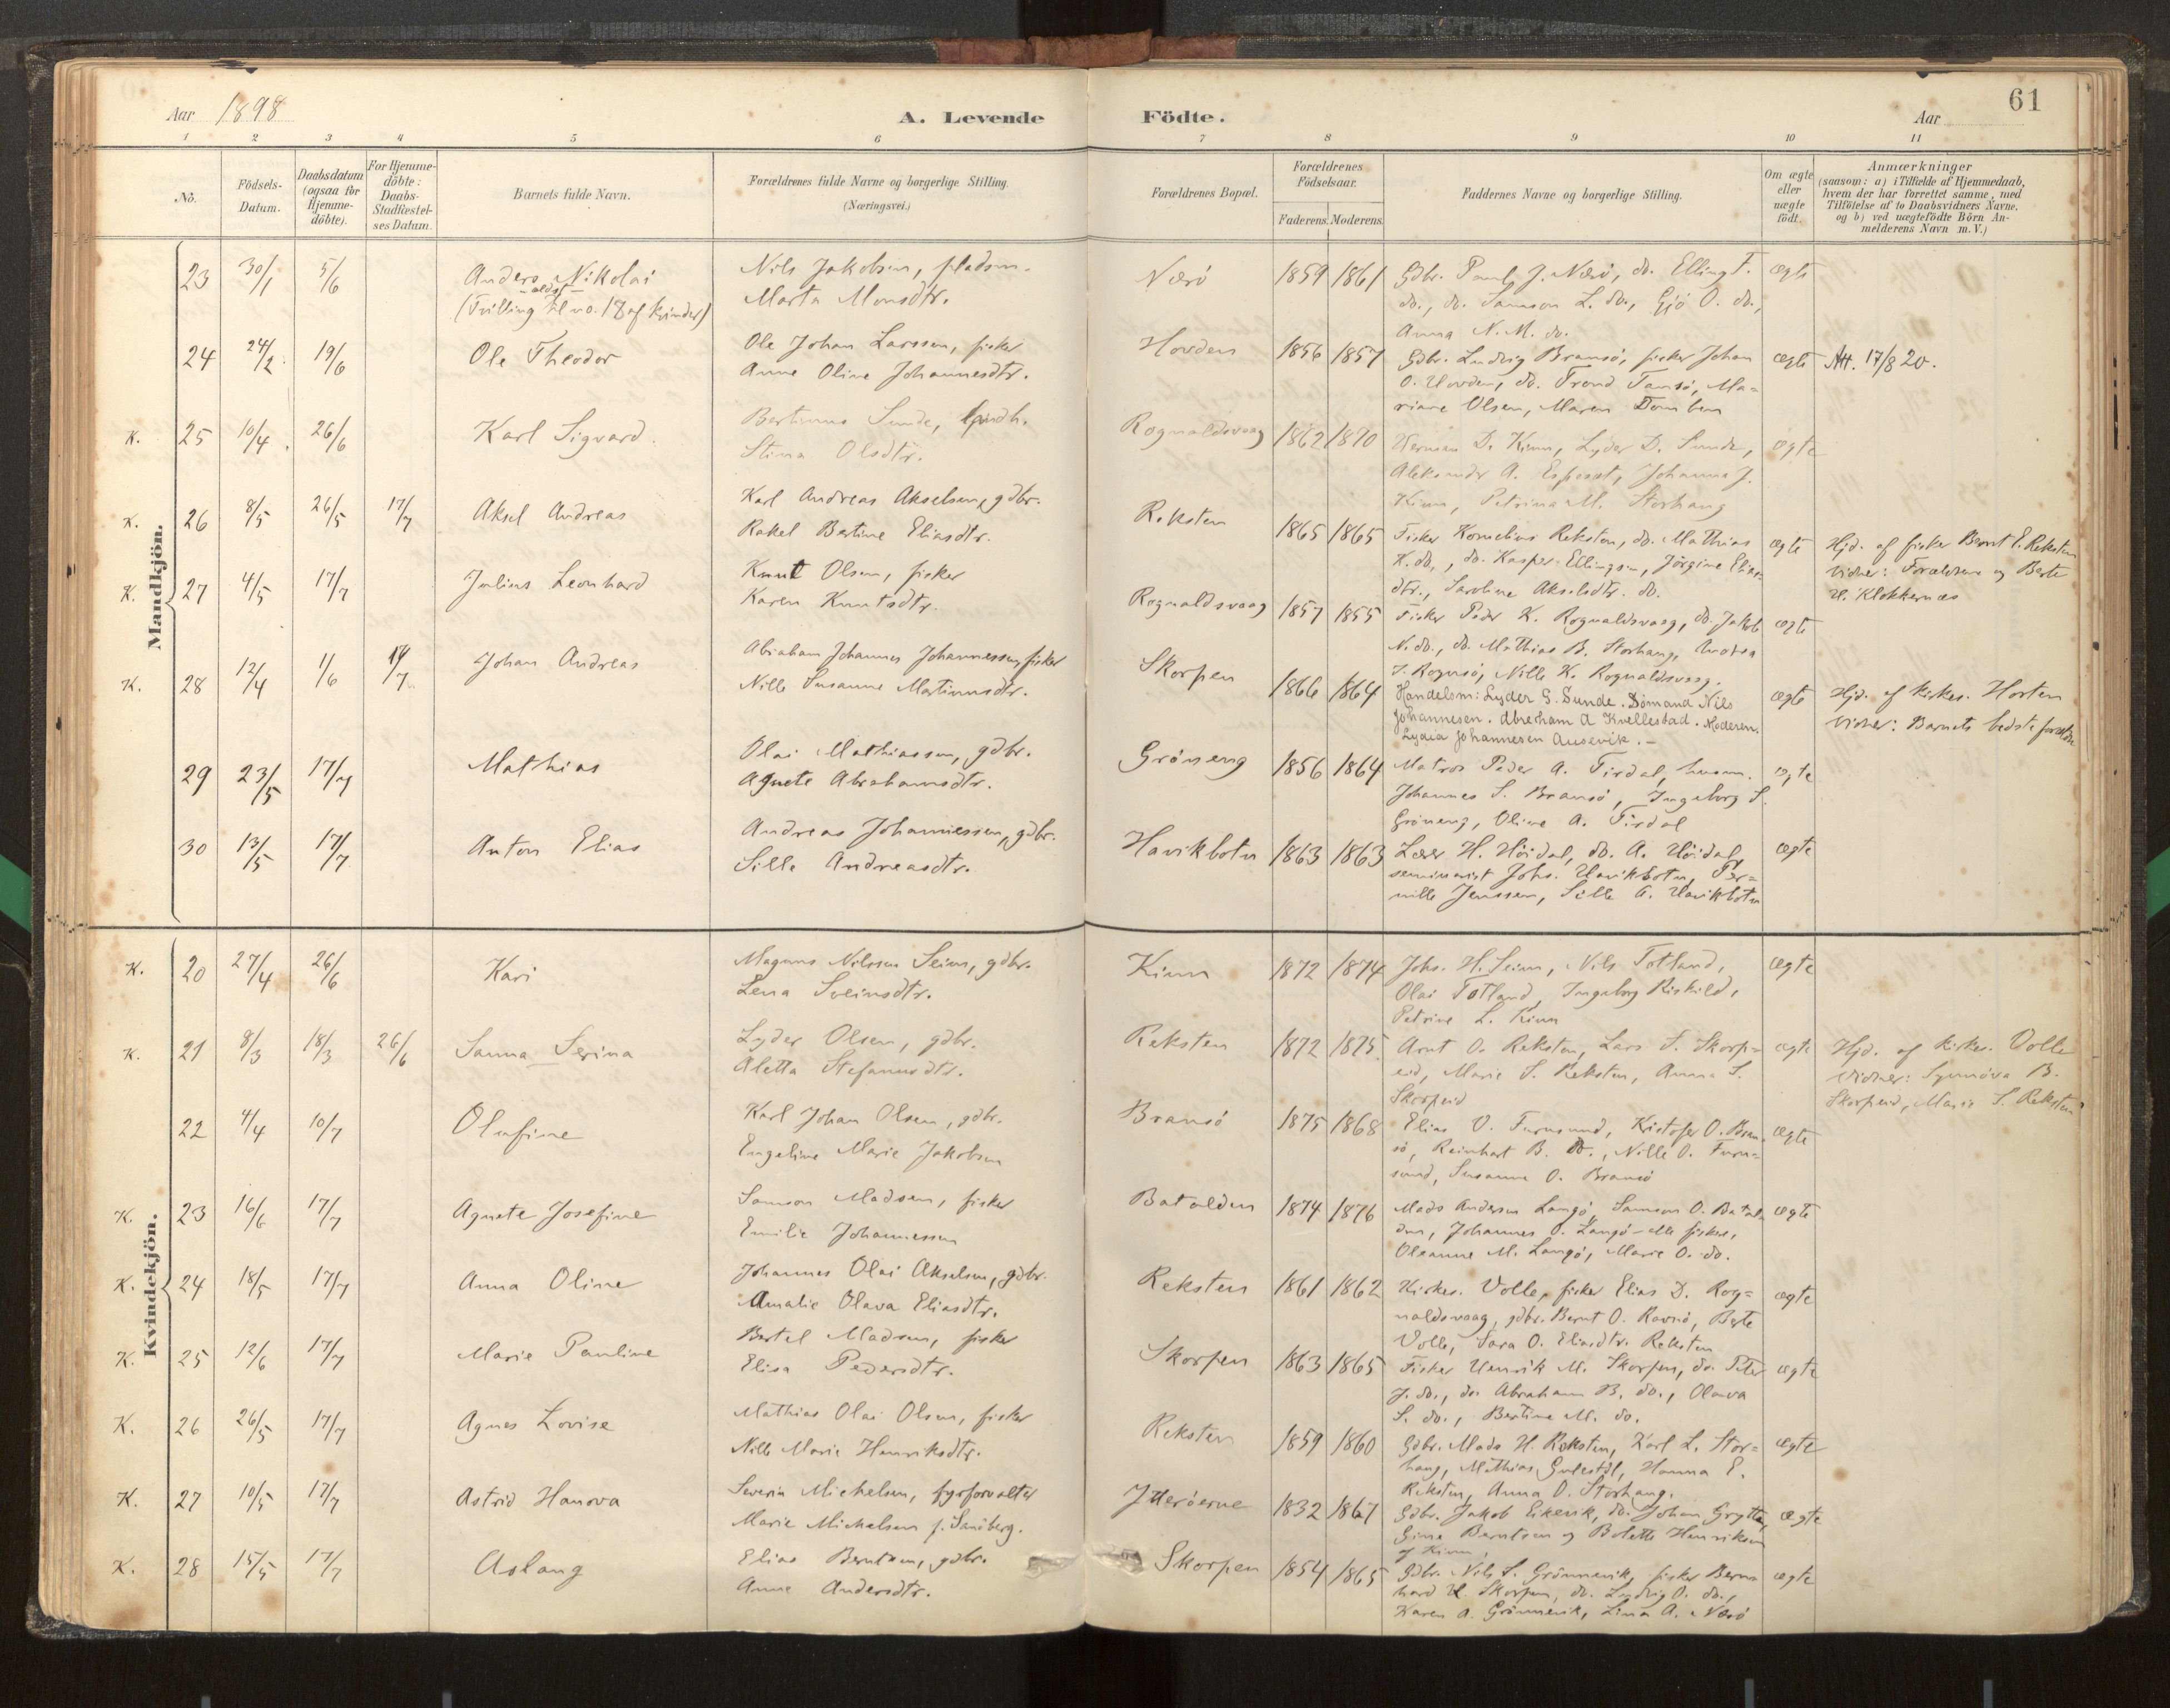 Aar 1898
A. Levende Födte.
Aar
61
1 2 3 4 5 6 7 8 9 10 11
No.
Födsels-
Datum.
Daabsdatum
(ogsaa for
Hjemme-
döbte).
For Hjemme-
döbte:
Daabs-
Stadfæstel-
ses Datum.
Barnets fulde Navn.
Forældrenes fulde Navne og borgerlige Stilling.
(Næringsvei.)
Forældrenes Bopæl.
Forældrenes
Födselsaar.
Faderens. Moderens.
Faddernes Navne og borgerlige Stilling.
Om ægte
eller
uægte
födt.
Anmærkninger
(saasom: a) i Tilfælde af Hjemmedaab,
hvem der har forrettet samme, med
Tilföielse af to Daabsvidners Navne,
og b) ved uægtefödte Börn An-
melderens Navn m. V.)
Mandkjön.
23 30/1 5/6 Anders Nikolai
(Tvilling til no. 18 af kvinder)
ældst
Nils Jakobsen, pladsm.
Marta Monsdtr.
Nærö 1859 1861
Gdbr. Paul J. Nærö, do. Elling T.
do., do. Samson L. do., Gjö O. do.,
Anna N. M. do.
ægte
24 24/2 19/6 Ole Theodor
Ole Johan Larssen, fisker
Anne Oline Johannesdtr.
Hovden 1856 1857
Gdbr. Ludvig Bransö, fisker Johan
O. Hovden, do. Trond Tansö, Ma-
riane Olsen, Maren Domben
ægte Att. 17/8 20.
K. 25 10/4 26/6 Karl Sigvard
Bertinus Sunde,
Stina Olsdtr.
Rognaldsvaag 1862 1870
Herman D. Kinn, Lyder D. Sunde,
Aleksander A. Espeset, Johanna J.
Kinn, Petrina M. Storhaug
ægte
K. 26 8/5 26/5 17/7 Aksel Andreas
Karl Andreas Akselsen, gdbr.
Rakel Bertine Eliasdtr.
Reksten 1865 1865
Fisker Kornelius Reksten, do. Mathias
K. do., do. Kasper Ellingsen, Jörgine Elias-
dtr., Saroline Akselsdtr. do.
ægte
Hjd. af fisker Bernt E. Reksten
Vidner: Forældrene og Berte
H. Klokkernes
K. 27 4/5 17/7 Julius Leonhard
Knut Olsen, fisker
Karen Knutsdtr.
Rognaldsvaag 1857 1855
Fisker Peder K. Rognaldsvaag, do. Jakob
N. do., do. Mathias B. Storhaug, Andrea
J. Rognsö, Nille K. Rognaldsvaag.
ægte
K. 28 12/4 1/6 17/7 Johan Andreas
Abraham Johannes Johannessen, fisker
Nille Susanne Martinusdtr.
Skorpen 1866 1864
Handelsm: Lyder S. Sunde. Sömand Nils
Johannesen. Abraham A Kvellestad. Moderen.
Lydia Johannesen Ausevik. -
ægte
Hjd. af kirkes. Horten
Vidner: Barnets bedsteforældre
29 23/5 17/7 Mathias
Olai Mathiassen, gdbr.
Agnete Abrahamsdtr.
Gröneng 1856 1864
Matros Peder A. Tirdal, husm.
Johannes S. Bransö, Ingeborg S.
Gröneng, Oline A. Tirdal
ægte
30 13/5 17/7 Anton Elias
Andreas Johannessen, gdbr.
Sille Andreasdtr.
Havikbotn 1863 1863
Lærer H. Höidal, do. A. Höidal,
seminarist Johs. Havikbotn, Per-
nille Jenssen, Sille A. Havikbotn
ægte
Kvindekjön.
K. 20 27/4 26/6 Kari
Magnus Nilssen Seim, gdbr.
Lena Sveinsdtr.
Kinn 1872 1874
Johs. H. Seim, Nils Totland,
Olai Totland, Ingeborg Riskild,
Petrine L. Kinn
ægte
K. 21 8/3 18/3 26/6 Sanna Serina
Lyder Olsen, gdbr.
Aletta Stefanusdtr.
Reksten 1872 1875.
Arnt O. Reksten, Lars S. Skorp-
eid, Marie S. Reksten, Anna S.
Skorpeid
ægte
Hjd. af kirkes. Volle
Vidner: Synnöva B.
Skorpeid, Marie S. Reksten
22 4/4 10/7 Olufine
Karl Johan Olsen, gdbr.
Engeline Marie Jakobsen
Bransö 1875 1868
Elias O. Furusund, Kristofer O. Bran-
sö, Reinhart B. do., Nille O. Furu-
sund, Susanne O. Bransö
ægte
K. 23 16/6 17/7 Agnete Josefine
Samson Madsen, fisker
Emilie Johannessen
Batalden 1874 1876
Mads Andersen Langö, Samson O. Batal-
den, Johannes O. Langö - alle fiskere,
Olsanne M. Langö, Marie O. do.
ægte
K. 24 18/5 17/7 Anna Oline
Johannes Olai Akselsen, gdbr.
Amalie Olava Eliasdtr.
Reksten 1861 1862
Kirkes. Volle, fisker Elias D. Rog-
naldsvaag, gdbr. Bernt O. Ravnö, Berte
Volle, Sara O. Eliasdtr. Reksten
ægte
K. 25 12/6 17/7 Marie Pauline
Bertel Madsen, fisker
Elisa Pedersdtr.
Skorpen 1863 1865
Fisker Henrik M. Skorpen, do. Peter
J. do., do. Abraham B. do., Olava
S. do., Bertine M. do.
ægte
K. 26 26/5 17/7 Agnes Lovise
Mathias Olai Olsen, fisker
Nille Marie Henriksdtr.
Reksten 1859 1860
Gdbr. Mads H. Reksten, Karl L. Stor-
haug, Mathias Gulestöl, Hanna E.
Reksten, Anna O. Storhaug.
ægte
K. 27 10/5 17/7 Astrid Hanova
Severin Michelsen, fyrforvalter
Marie Michelsen f. Sandberg.
Ytteröerne 1832 1867
Gdbr. Jakob Eikevik, do. Johan Grytten,
Gine Berntsen og Bolette Henriksen
af Kinn.
ægte
K. 28 15/5 17/7 Aslaug
Elias Berntsen, gdbr.
Anne Andersdtr.
Skorpen 1854 1865
Gdbr. Nils S. Grönnevik, fisker Bern-
hard H. Skorpen, do. Ludvig O. do.,
Karen A. Grönnevik, Lina A. Nærö
ægte